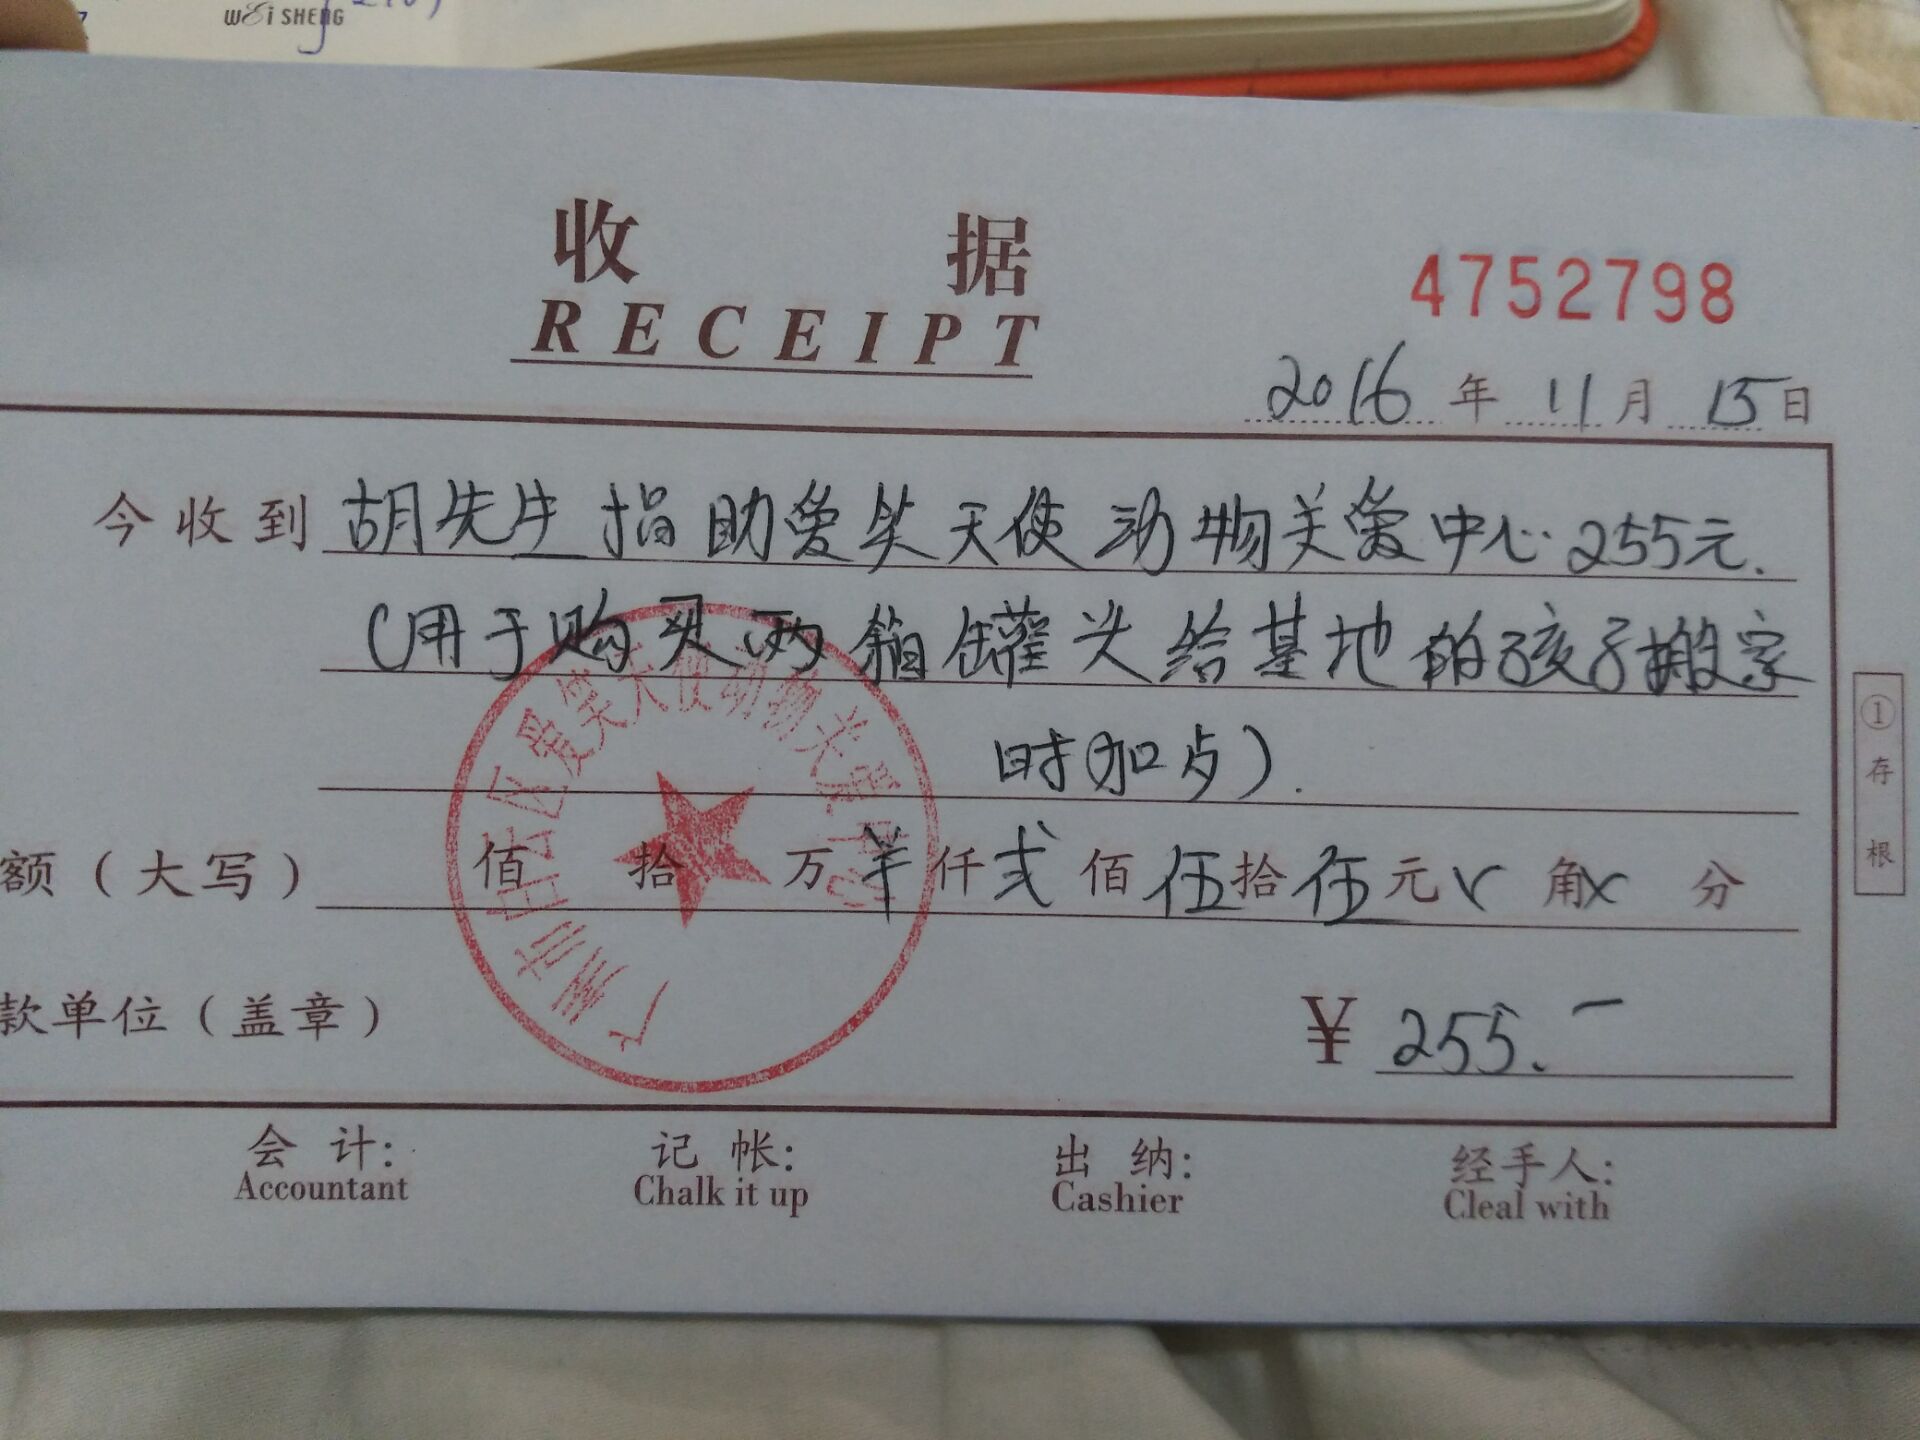 WEi SHENG
收 据
RECEIPT
4752798
2016 年 11 月 15 日
今收到 胡先生 捐助爱笑天使动物关爱中心 255元.
(用于购买两箱罐头给基地的孩子搬家
时加点).
额（大写） 佰 拾 万 仟 弍 佰 伍 拾 伍 元 角 分
款单位（盖章）
¥ 255.—
广州市白云区爱笑天使动物关爱中心
①存根
会 计: 记 帐: 出 纳: 经手人:
Accountant Chalk it up Cashier Cleal with